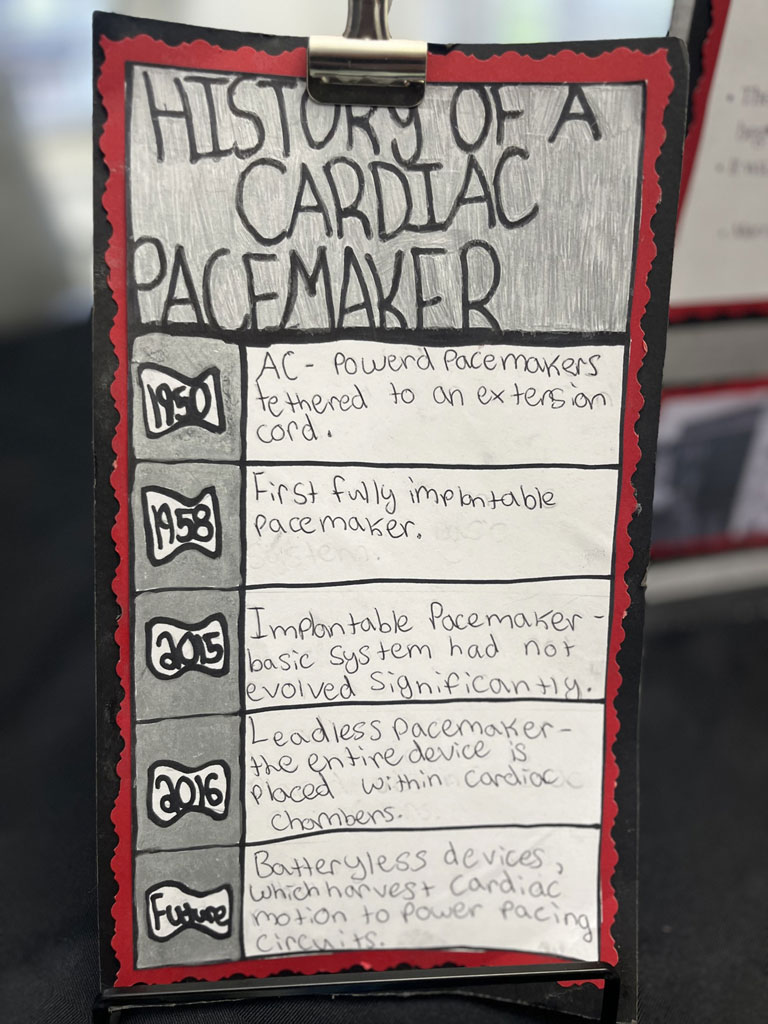 HISTORY OF A
CARDIAC
PACEMAKER
1950
AC- Powerd Pacemakers
tethered to an extension
cord.
1958
First fully implantable
pacemaker.
2015
Implantable Pacemaker-
basic system had not
evolved significantly.
2016
Leadless pacemaker-
the entire device is
placed within cardiac
chambers.
Future
Batteryless devices,
which harvest cardiac
motion to power pacing
circuits.